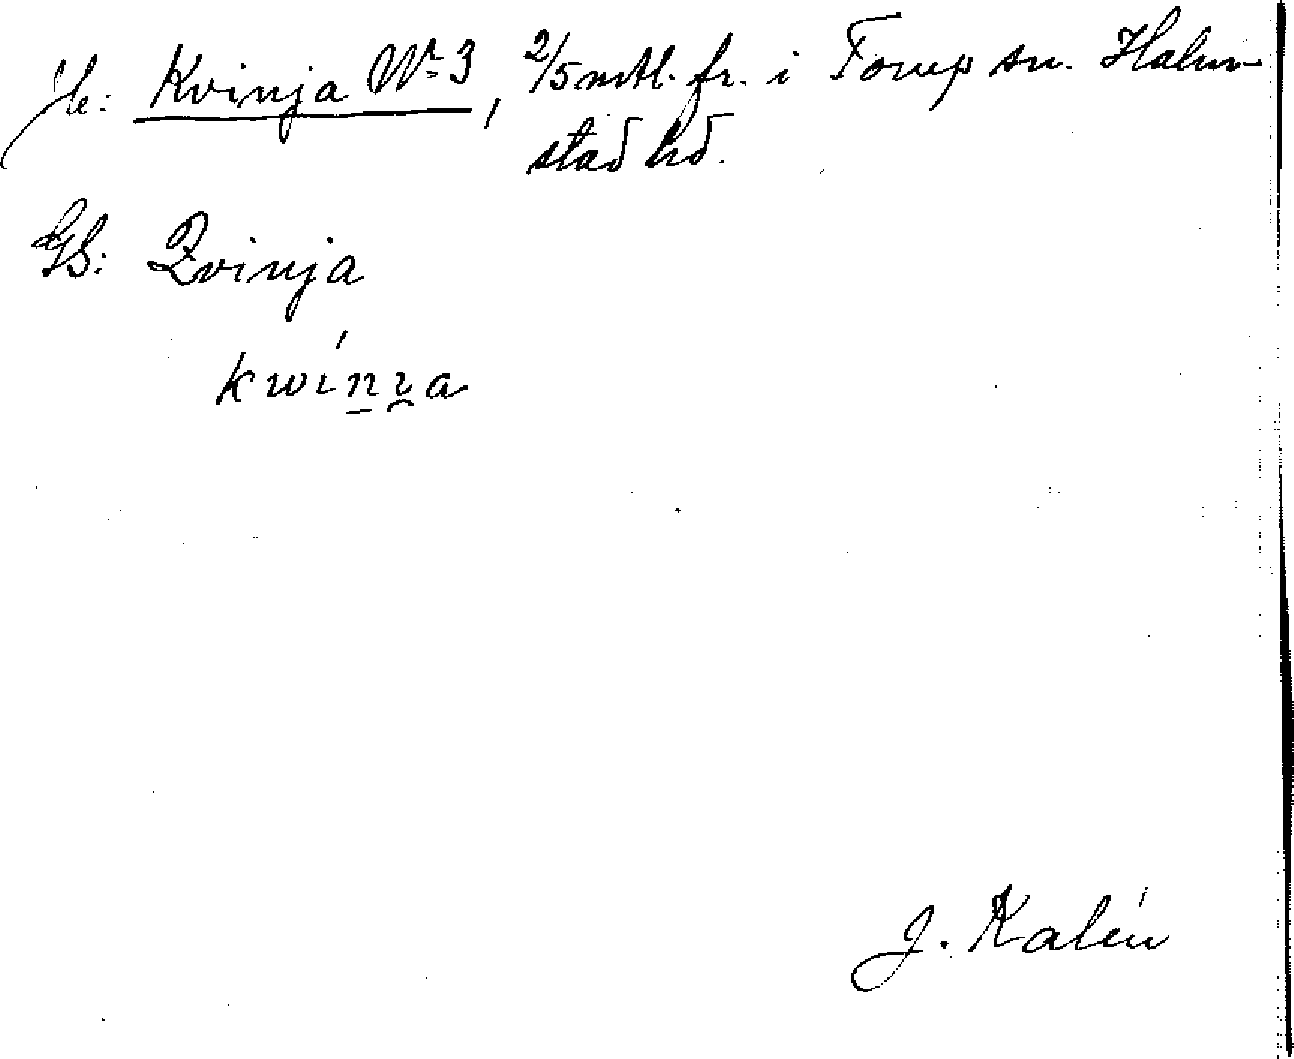 Jb: Kvinja Nr 3, 2/5 mtl. fr. i Torup sn. Halm-
stad hd.
GS: Qvinja
kwínɪ̯a
J. Kalén